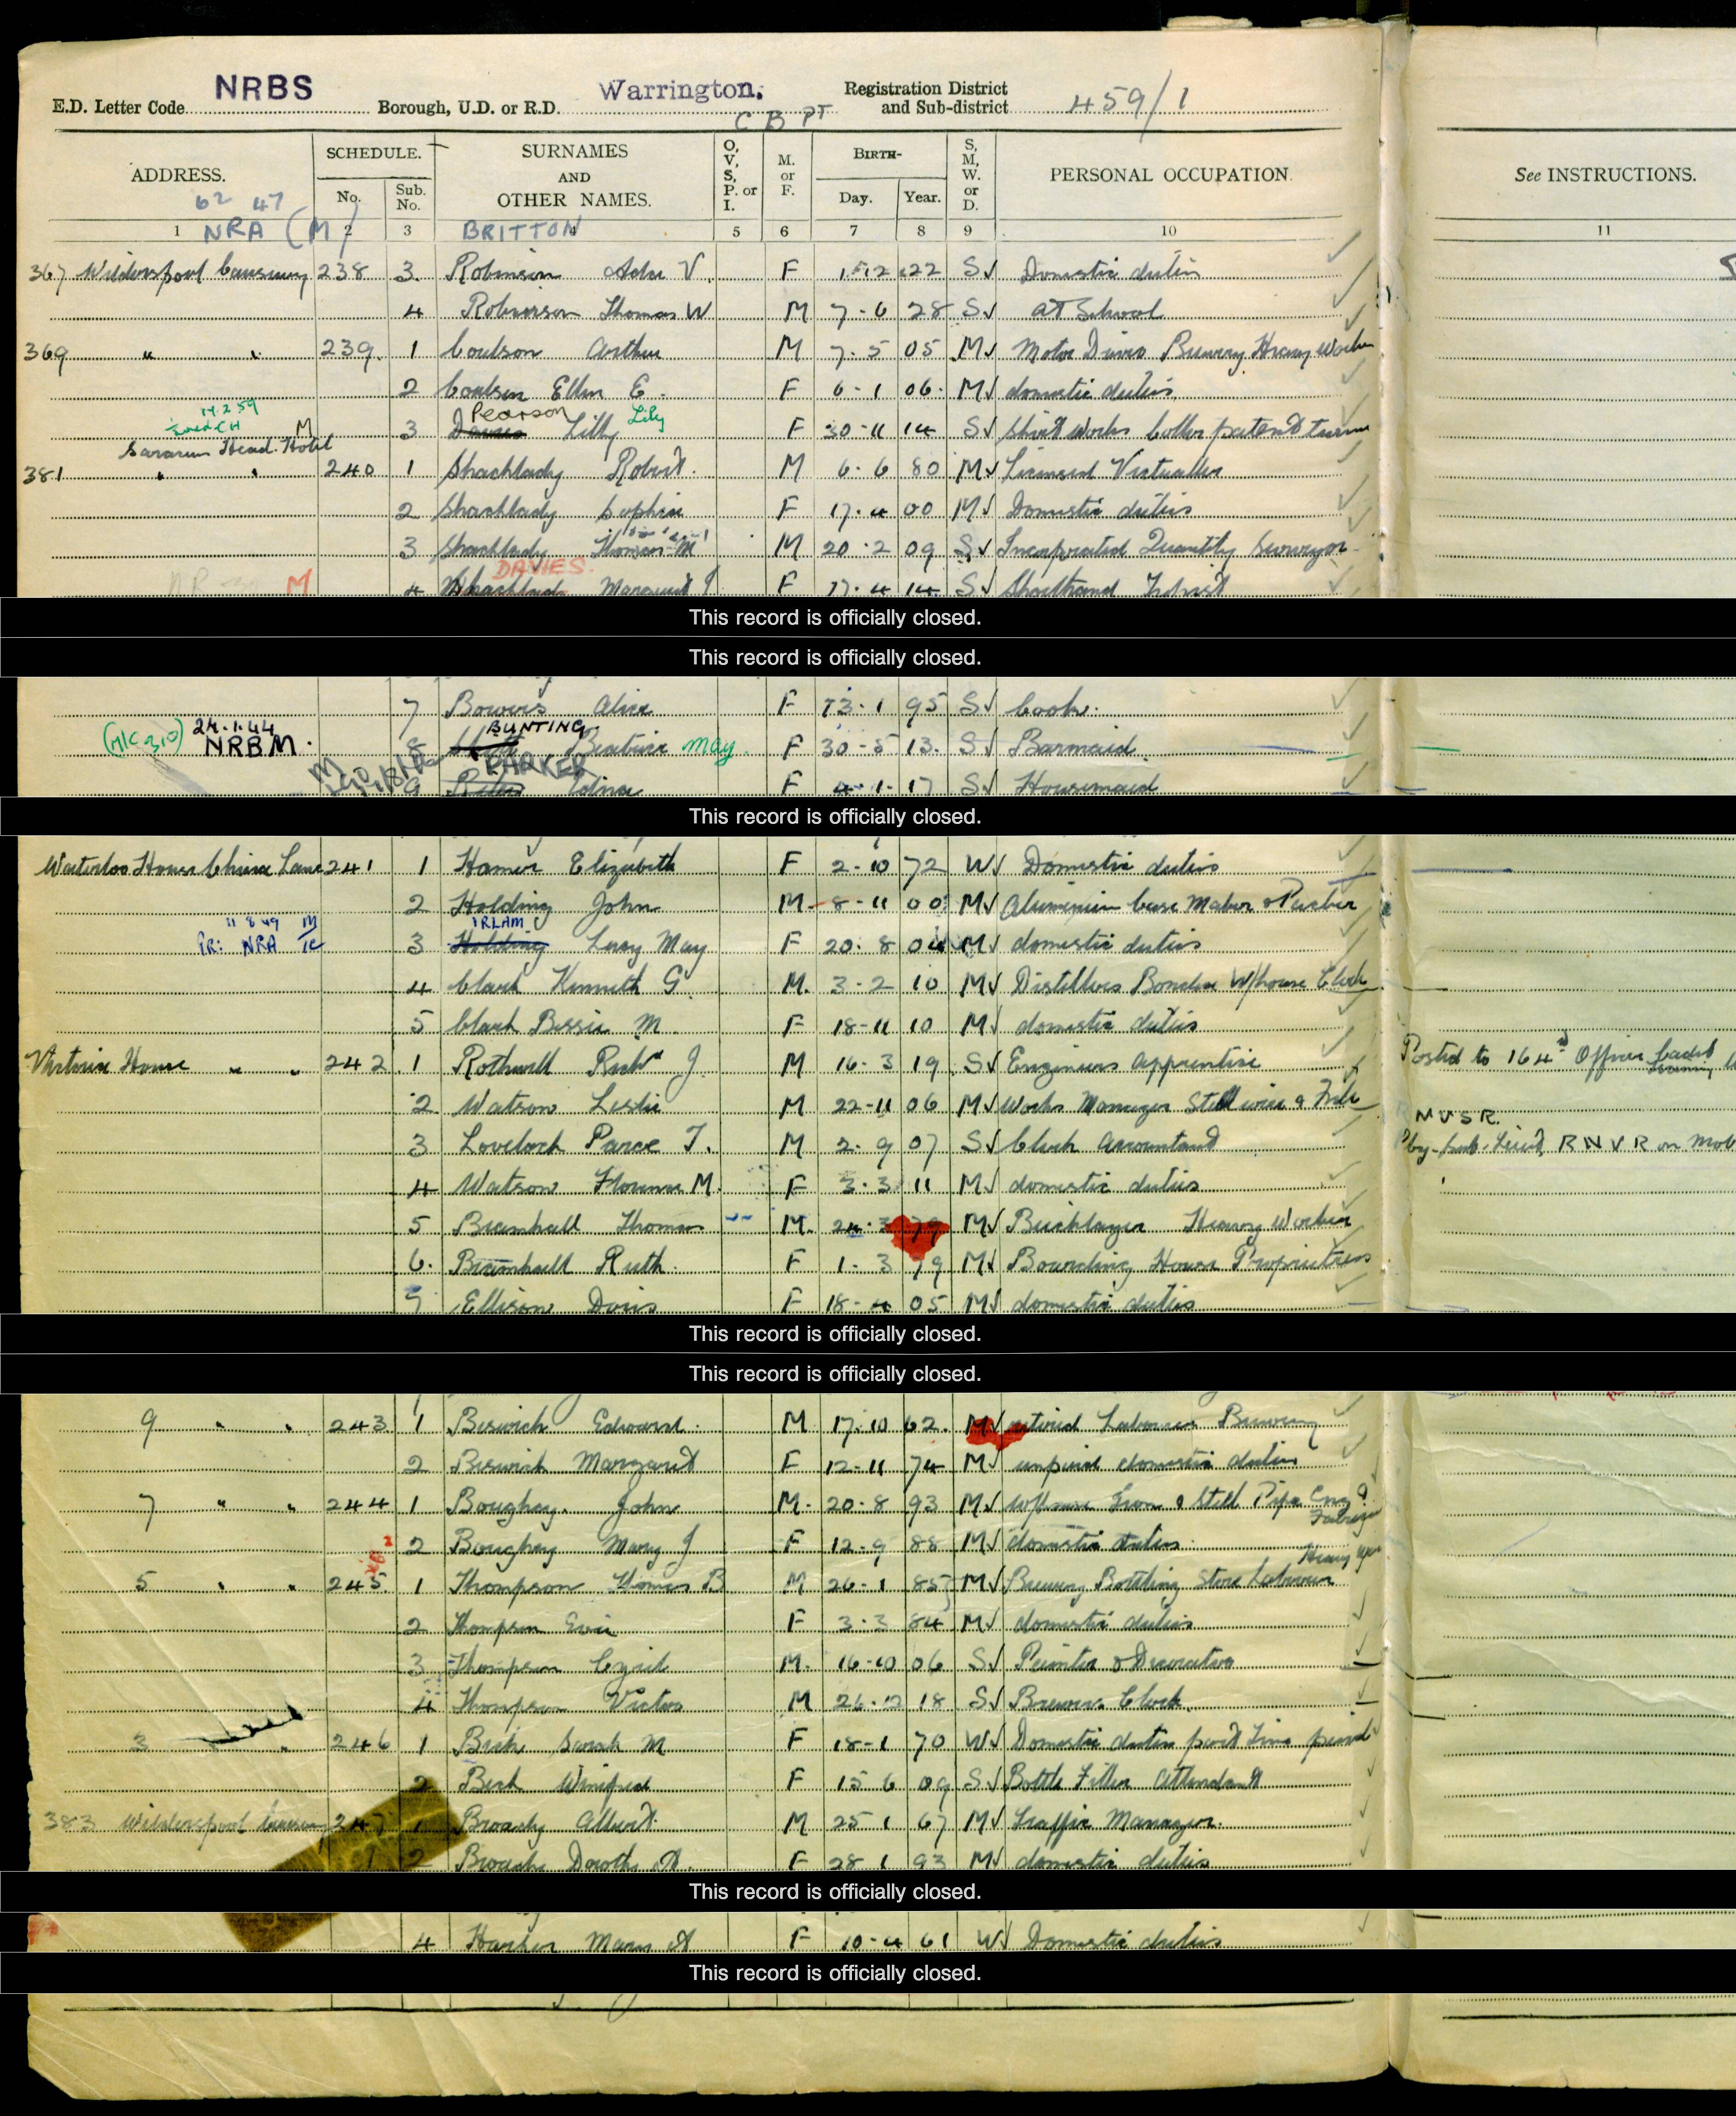 E.D. Letter Code NRBS Borough, U.D. or R.D. Warrington. C B PT Registration District and Sub-district 459/1
ADDRESS. SCHEDULE. No. Sub. No. SURNAMES AND OTHER NAMES. O, V, S, P. or I. M. or F. BIRTH- Day. Year. S, M, W. or D. PERSONAL OCCUPATION. See INSTRUCTIONS.
62 47
1 2 3 4 5 6 7 8 9 10 11
NRA (M) BRITTON
367 Wilderspool Causeway 238 3 Robinson Ada V F 22 S Domestic duties
4 Robinson Thomas W M 7-6 28 S at School
369 " " 239 1 Coulson Arthur M 7-5 05 M Motor Driver Brewery Heavy Worker
2 Coulson Ellen E. F 6-1 06 M domestic duties
14.2.59 M Pearson Lily
3 Davies Lilly F 30-11 14 S Shirt Works Collar
Saracens Head Hotel
381 " " 240 1 Shacklady Robert M 6-6 80 M Licensed Victualler
2 Shacklady Sophia F 17-4 00 M Domestic duties
3 Shacklady Thomas M M 20-2 09 S Incorporated Quantity Surveyor
DAVIES
M 4 Shacklady Margaret F 17-4 14 S Shorthand Typist
This record is officially closed.
This record is officially closed.
7 Bowers Alice F 1 95 S Cook
24.1.44 BUNTING
NRBM. 8 Beatrice May F 30-5 13 S Barmaid
PARKER
9 Edna F 4-1 17 S Housemaid
This record is officially closed.
Waterloo House China Lane 241 1 Hamer Elizabeth F 2-10 72 W Domestic duties
2 Holding John M 8-11 00 M Aluminium Maker & Packer
11 8 49 M IRLAM
PR: NRA 3 Holding Lucy May F 20-8 04 M domestic duties
4 Clark Kenneth G. M 3-2 10 M Distillers Bonded W/house Clerk
5 Clark Bessie M. F 18-11 10 M domestic duties
Victoria House " " 242 1 Rothwell Richd J M 16-3 19 S Engineers Apprentice Posted to 164th Officer Cadet
2 Watson Leslie M 22-11 06 M Works Manager Steel wire M V S R.
3 Lovelock Parce T. M 2-9 07 S Clerk Accountant R N V R on
4 Watson Florence M. F 3-3 11 M domestic duties
5 Bramhall Thomas M 24-3 79 M Bricklayer Heavy Worker
6 Bramhall Ruth F 1-3 79 M Boarding House Proprietress
7 Ellison Doris F 18-4 05 M domestic duties
This record is officially closed.
This record is officially closed.
9 " " 243 1 Beswick Edward M 17-10 62 M retired Labourer Brewery
2 Beswick Margaret F 12-11 74 M unpaid domestic duties
7 " " 244 1 Boughey John M 20-8 93 M Iron & Steel Pipe
2 Boughey Mary J F 12-9 88 M domestic duties
5 " " 245 1 Thompson Thomas B M 26-1 85 M Brewery Bottling Store Labourer
2 Thompson F 3-3 84 M domestic duties
3 Thompson Cyril M 16-10 06 S Painter & Decorator
4 Thompson Victor M 26-12 18 S Brewers Clerk
3 " 246 1 Sarah M F 18-1 70 W Domestic duties part time paid
2 Winifred F 15-6 09 S Bottle Filler Attendant
383 Wilderspool Causeway 247 1 Albert M 25-1 67 M Traffic Manager
2 Dorothy F 28-1 93 M domestic duties
This record is officially closed.
4 Mary A F 10-4 61 W Domestic duties
This record is officially closed.